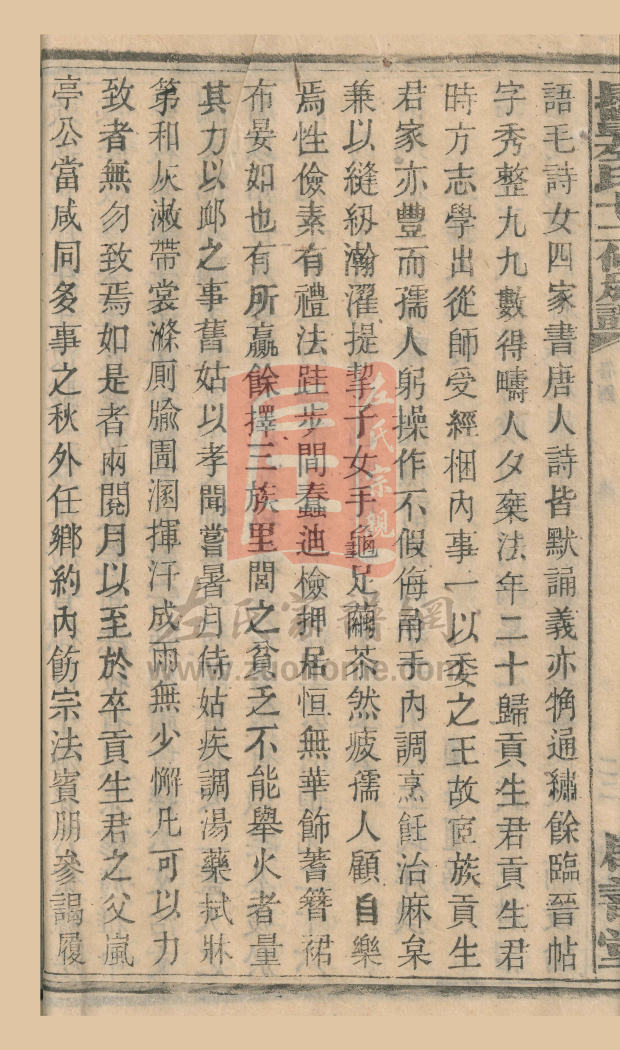 語毛詩女四家書唐人詩皆默誦義亦觕通繡餘臨晉帖
字秀整九九數得疇人夕桀法年二十歸貢生君貢生君
時方志學出從師受經梱內事一以委之王故宦族貢生
君家亦豐而孺人躬操作不假侮甬手內調烹飪治麻枲
兼以縫紉瀚濯提挈子女手龜足繭茶然疲孺人顧自樂
焉性儉素有禮法跬步間蠢迪檢押居恒無華飾蓍簪裙
布晏如也有所贏餘擇三族里閭之貧乏不能舉火者量
其力以卹之事舊姑以孝聞嘗暑月侍姑疾調湯藥拭牀
第和灰潄帶裳滌厠牏圊溷揮汗成雨無少懈凡可以力
致者無勿致焉如是者兩閱月以至於卒貢生君之父嵐
亭公當咸同多事之秋外任鄉約內飭宗法賓朋參謁履
左氏宗親
左氏家譜網
www.zuohome.com